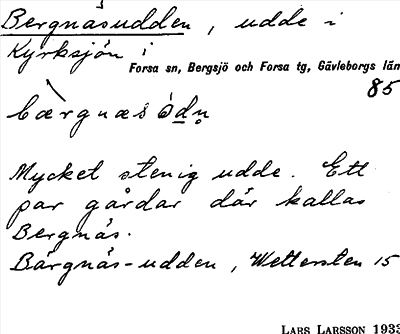 Bergnäsudden, udde i
Kyrksjön i
Forsa sn, Bergsjö och Forsa tg, Gävleborgs län
85
bærgnæs ò̀dṇ
Mycket stenig udde. Ett
par gårdar där kallas
Bergnäs.
Bärgnäs-udden, Wettersten 15
LARS LARSSON 1933